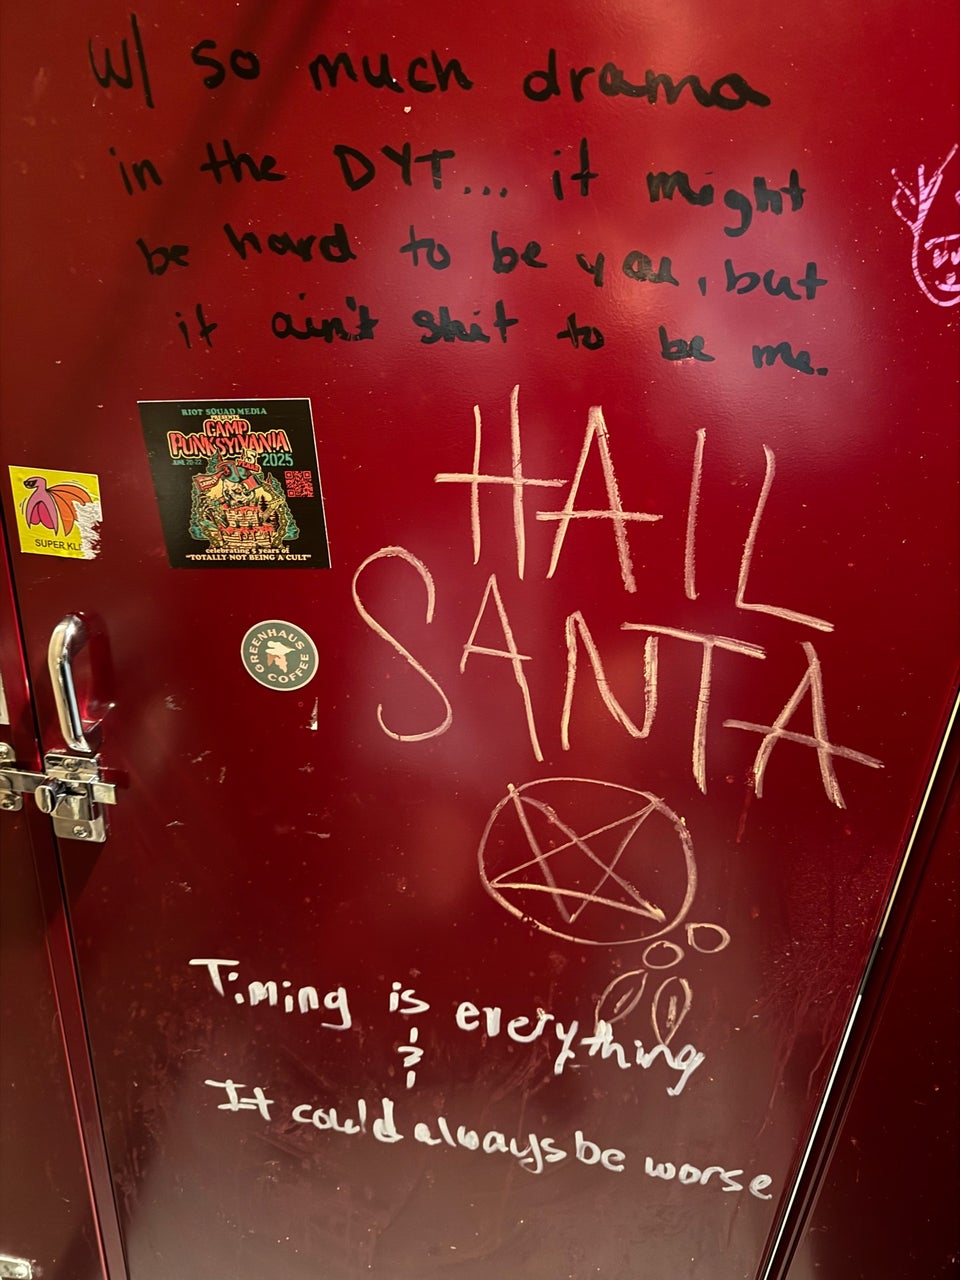 w/ so much drama
in the DYT... it might
be hard to be you, but
it ain't shit to be me.
RIOT SQUAD MEDIA
PRESENTS
CAMP
PUNKSYLVANIA
JUNE 20-22
2025
celebrating 5 years of
"TOTALLY NOT BEING A CULT"
SUPER KL
GREENHAUS
COFFEE
HAIL
SANTA
Timing is everything
&
It could always be worse